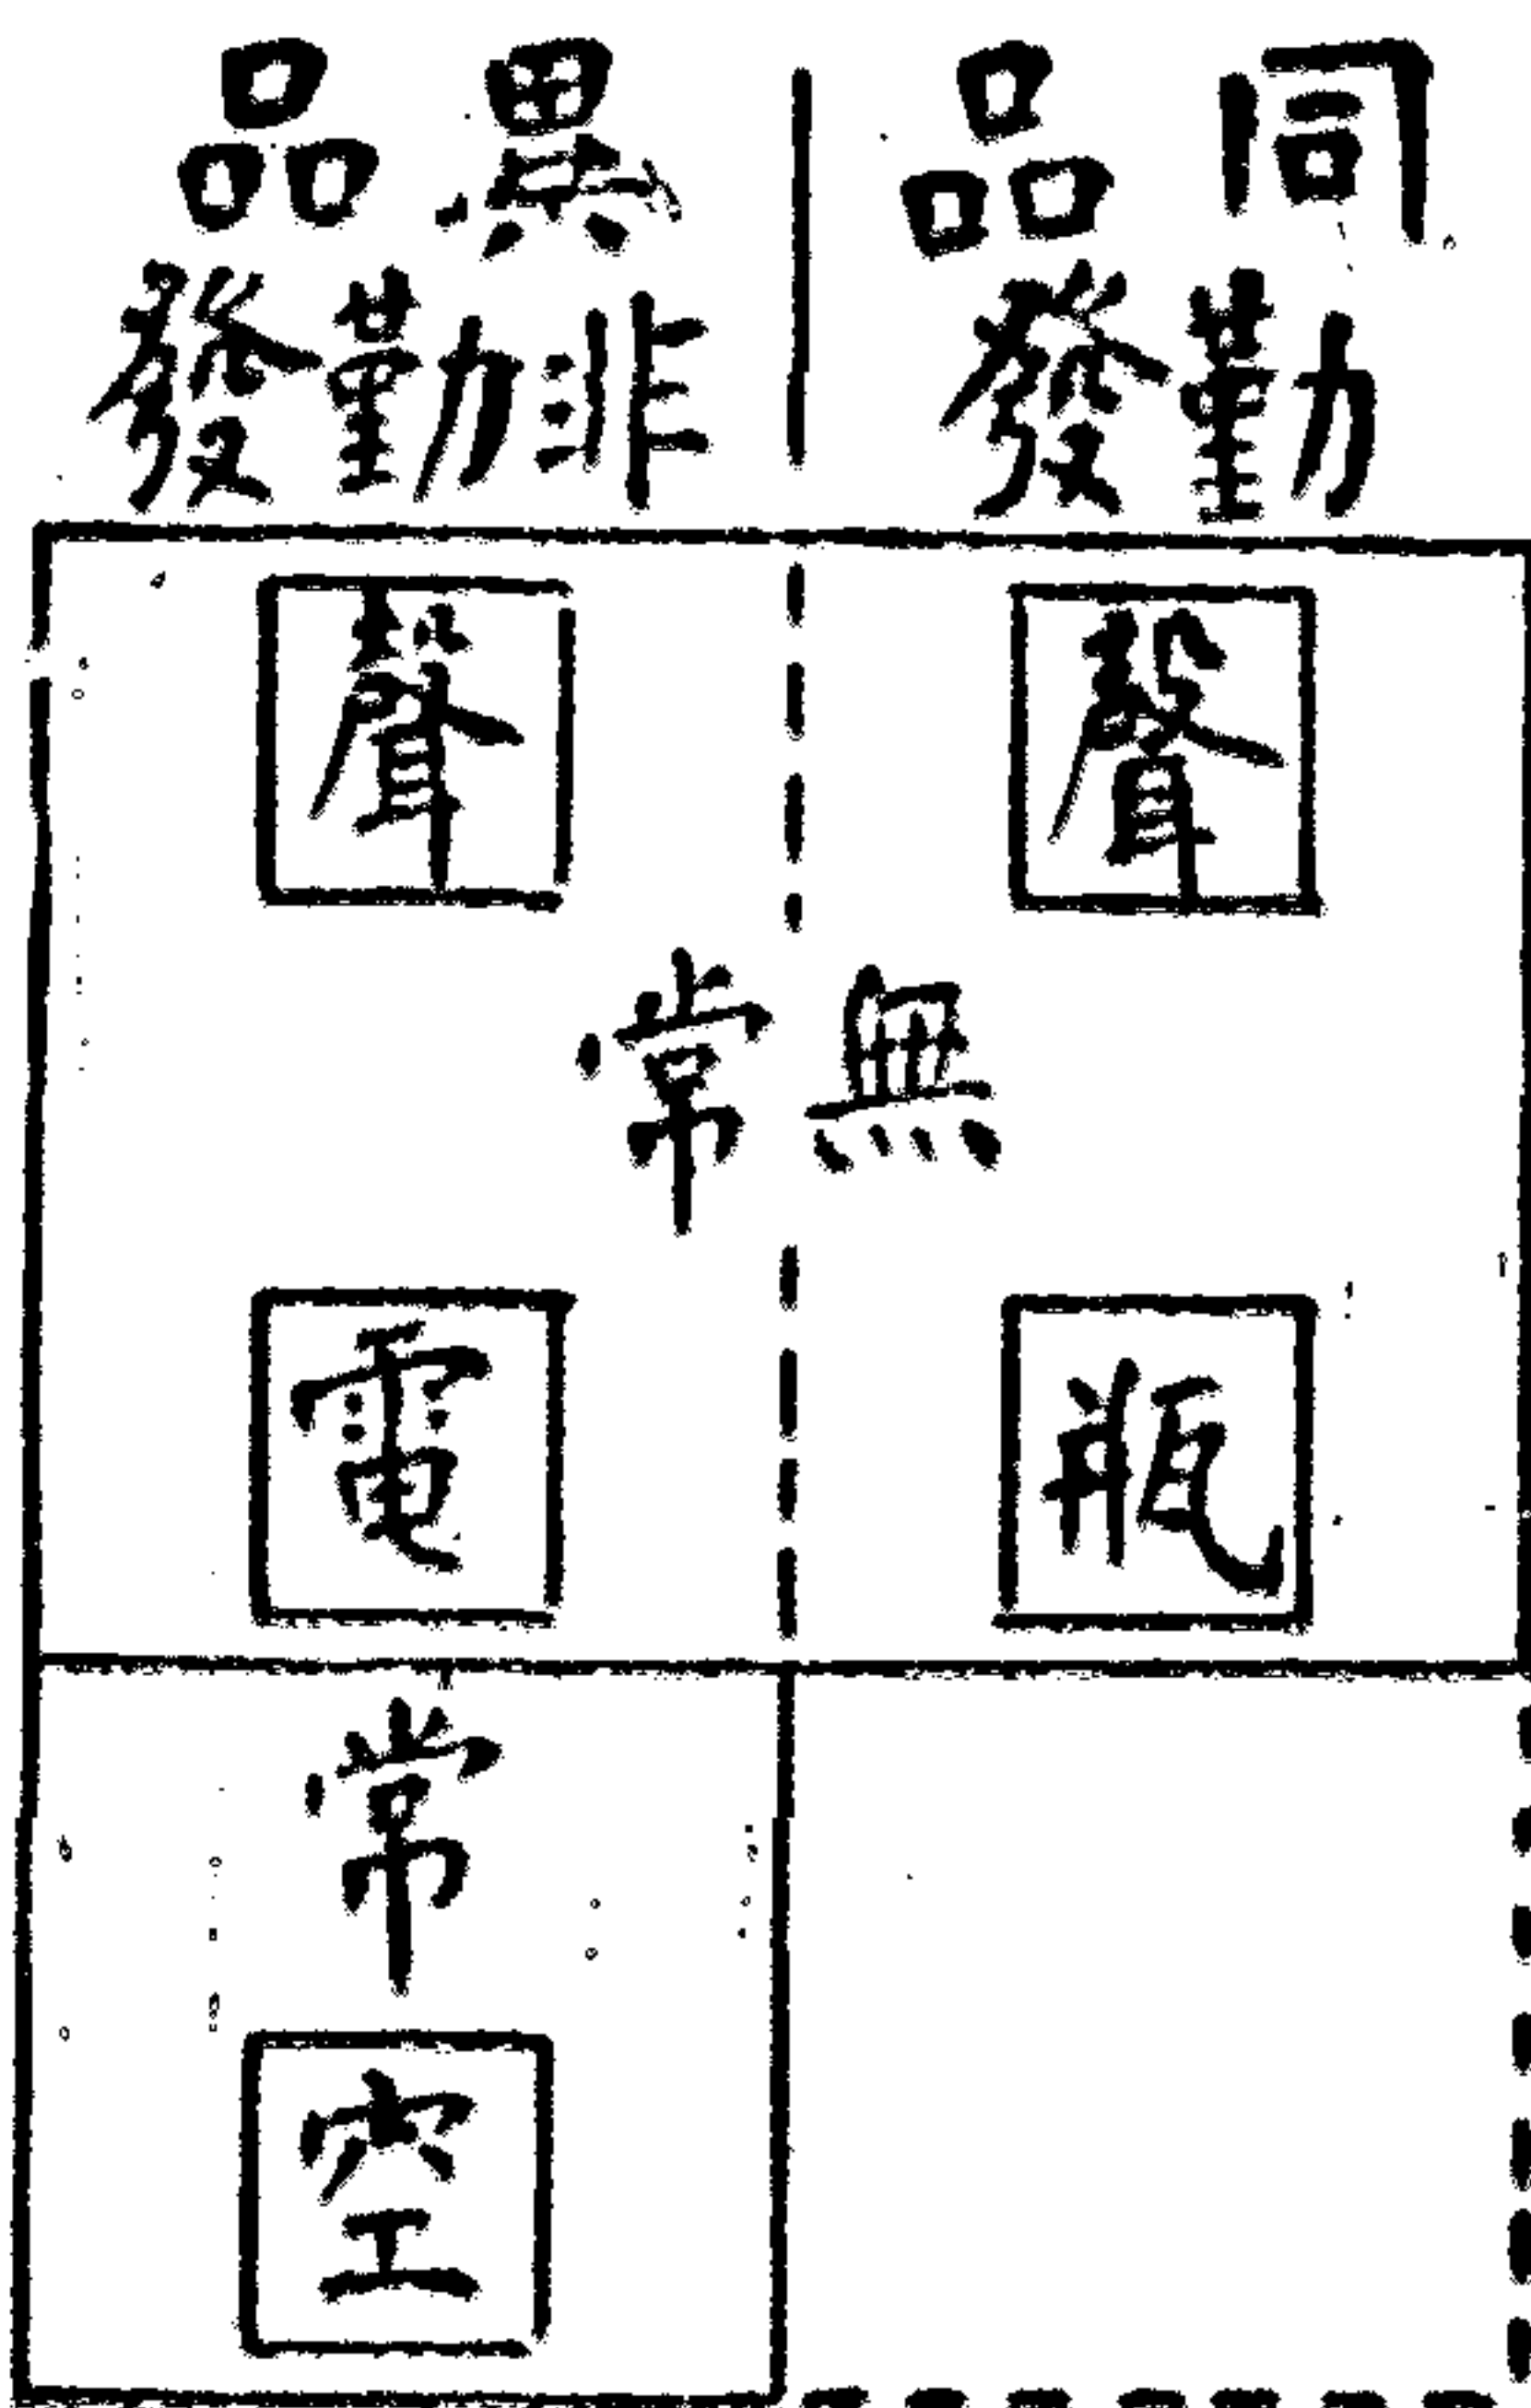 同品
勤發
異品
非勤發
聲
聲
無常
瓶
電
常
空